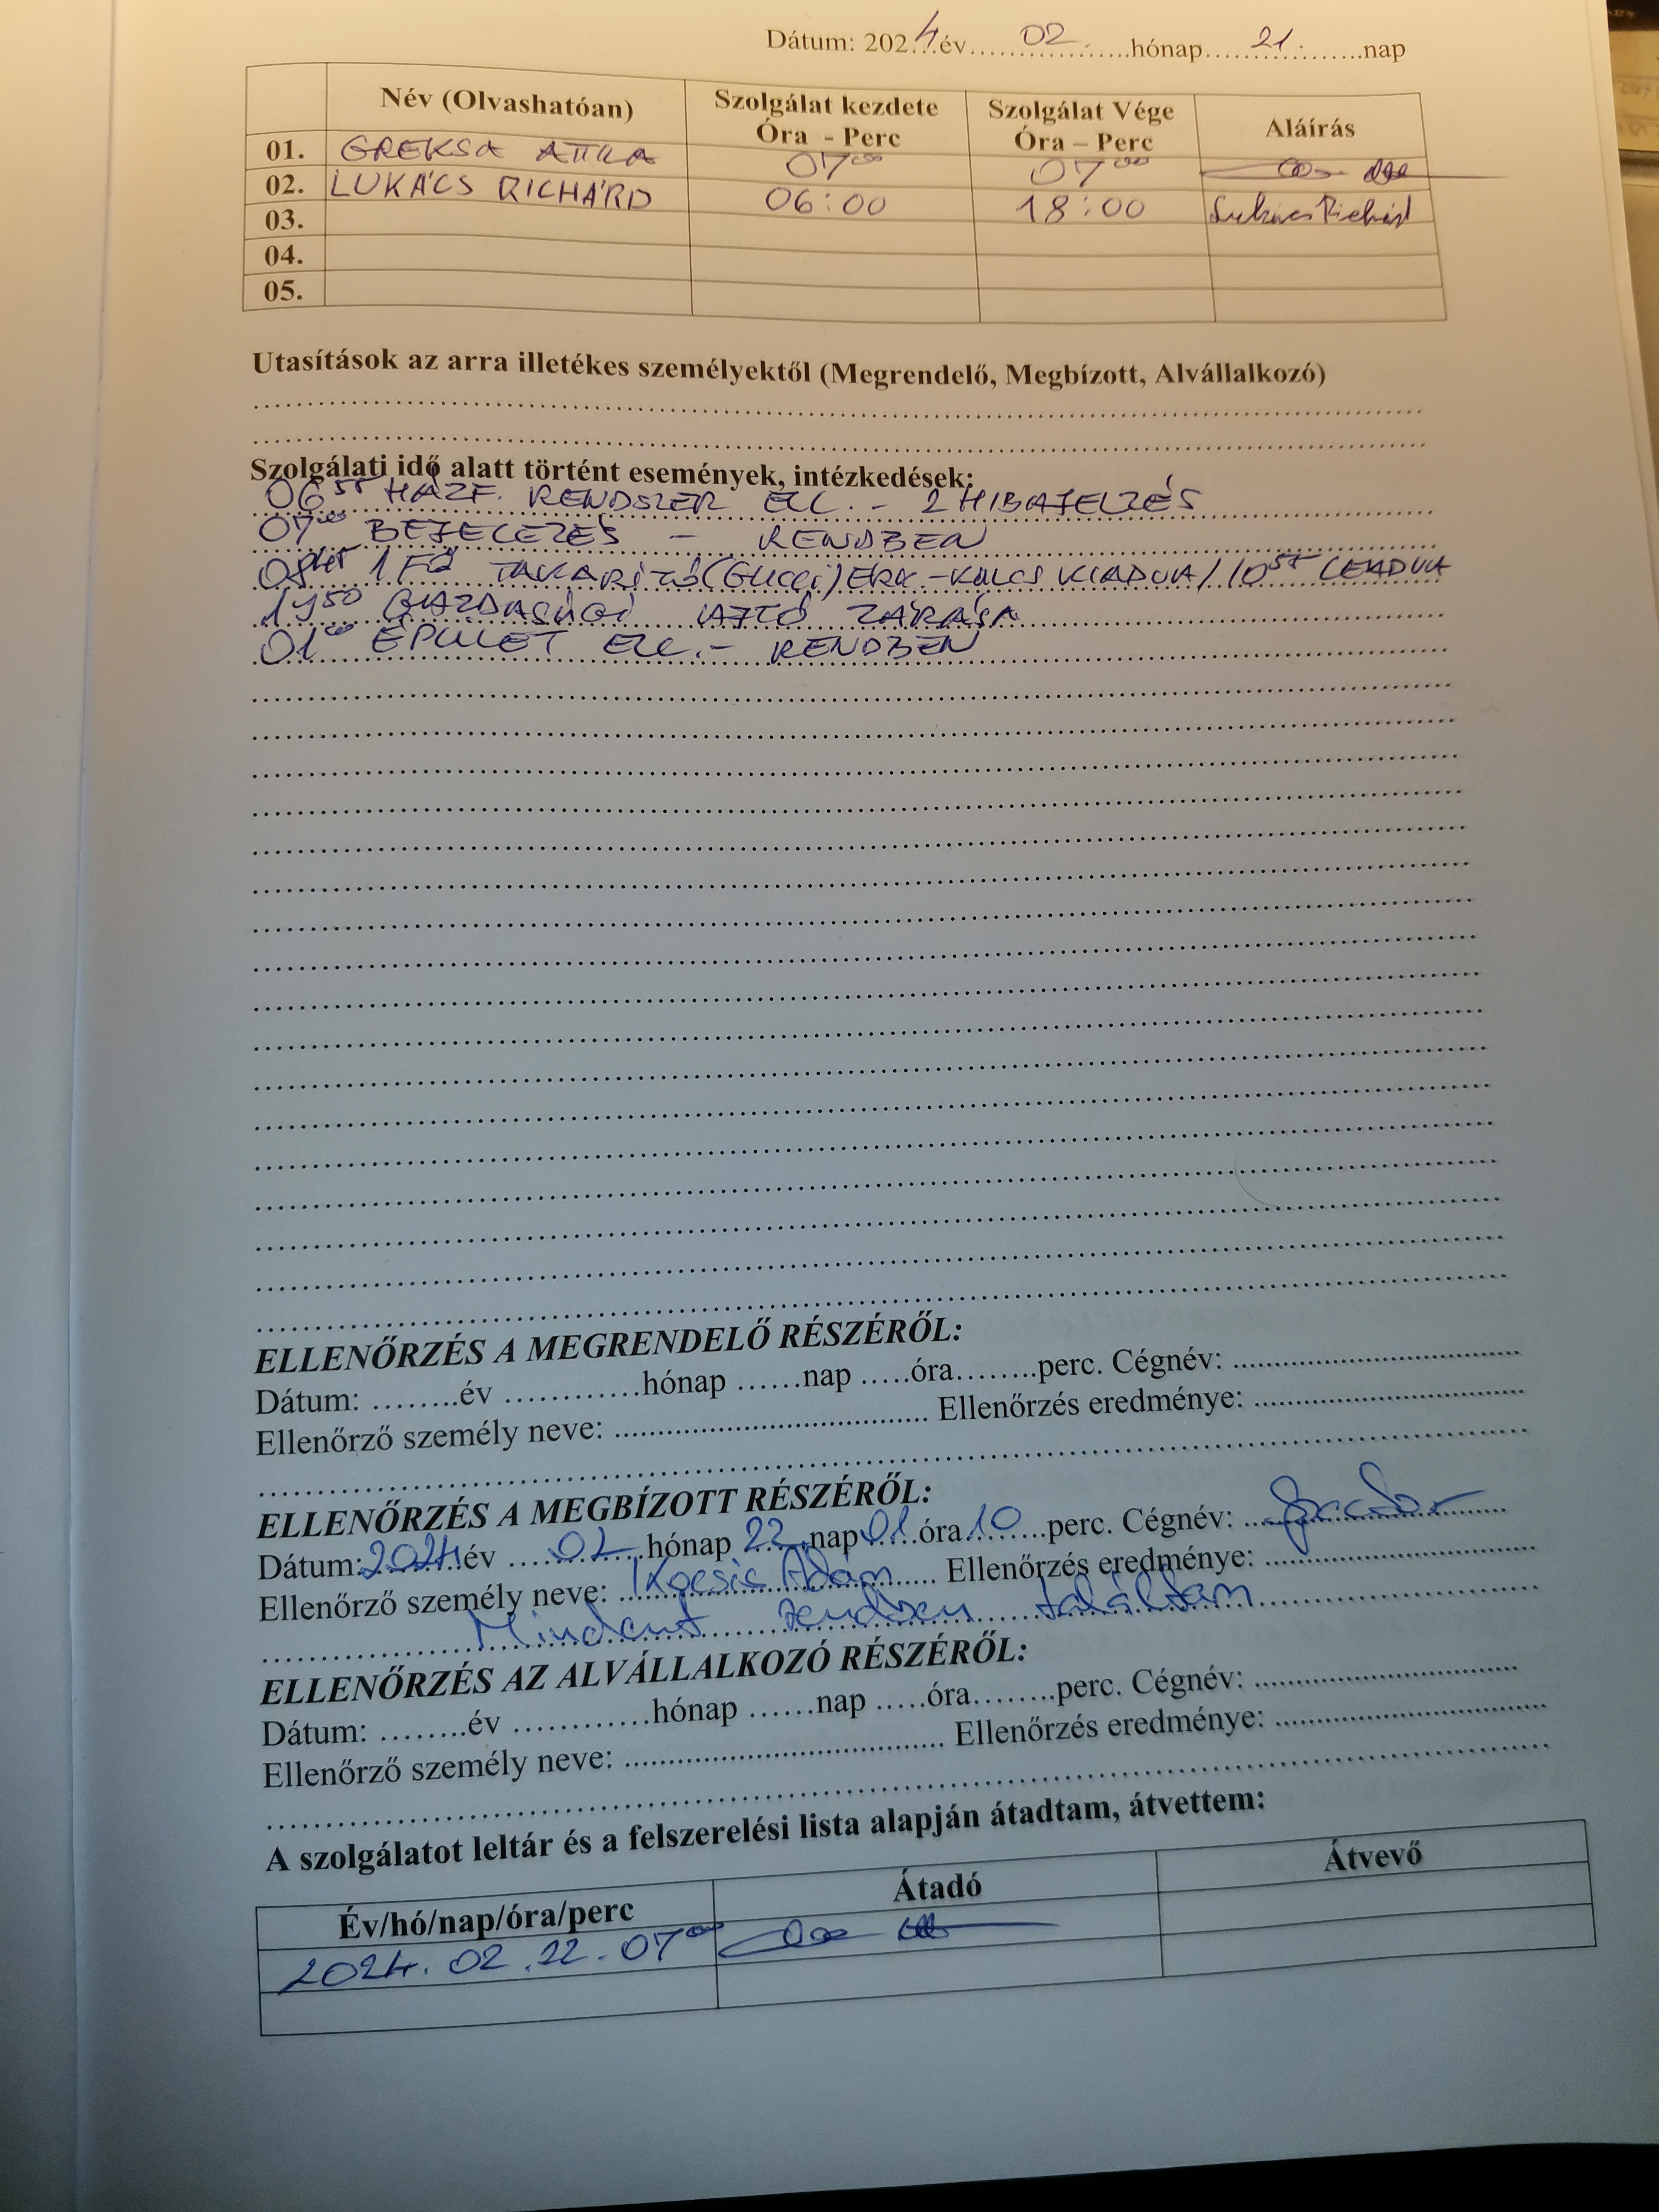 Dátum: 2024 év 02. hónap 21. nap
Név (Olvashatóan) Szolgálat kezdete Óra - Perc Szolgálat Vége Óra – Perc Aláírás
01. GREKSA ATTILA 07⁰⁰ 07⁰⁰
02. LUKÁCS RICHÁRD 06:00 18:00 Lukács Richárd
03.
04.
05.
Utasítások az arra illetékes személyektől (Megrendelő, Megbízott, Alvállalkozó)
Szolgálati idő alatt történt események, intézkedések:
06⁵⁵ HÁZF. RENDSZER ELL. - 2 HIBAJELZÉS
07⁰⁰ BEJELEZÉS - RENDBEN
1 FŐ TAKARÍTÓ (Gucci) ÉRK. - KULCS KIADVA / 10⁵⁵ LEADVA
GAZDASÁGI AJTÓ ZÁRÁSA
01⁰⁰ ÉPÜLET ELL. - RENDBEN
ELLENŐRZÉS A MEGRENDELŐ RÉSZÉRŐL:
Dátum: ........év ............hónap ......nap .....óra........perc. Cégnév: ..............................
Ellenőrző személy neve: .............................. Ellenőrzés eredménye: ..............................
ELLENŐRZÉS A MEGBÍZOTT RÉSZÉRŐL:
Dátum: 2024 év 02 hónap 22 nap 01 óra 10 perc. Cégnév:
Ellenőrző személy neve: Kocsis Ádám Ellenőrzés eredménye:
Mindent rendben találtam
ELLENŐRZÉS AZ ALVÁLLALKOZÓ RÉSZÉRŐL:
Dátum: ........év ............hónap ......nap .....óra........perc. Cégnév: ..............................
Ellenőrző személy neve: .............................. Ellenőrzés eredménye: ..............................
A szolgálatot leltár és a felszerelési lista alapján átadtam, átvettem:
Év/hó/nap/óra/perc Átadó Átvevő
2024. 02. 22. 07⁰⁰